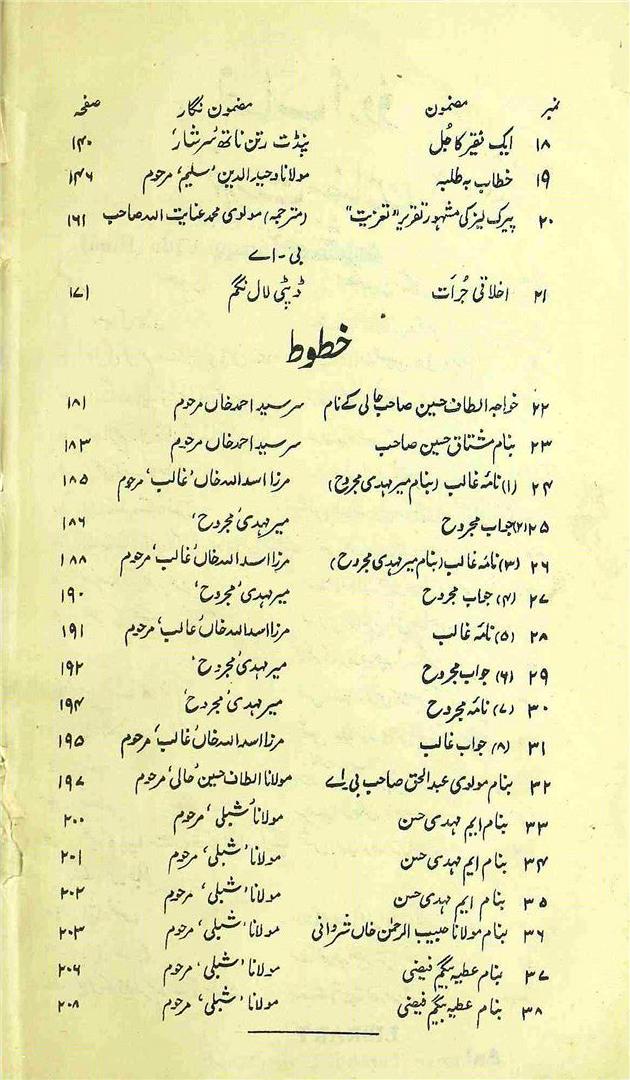 نمبر مضمون مضمون نگار صفحہ
۱۸ ایک فقیر کا جُل پنڈت رتن ناتھ ’سرشار‘ ۱۴۰
۱۹ خطاب بہ طلبہ مولانا وحید الدین ’سلیم‘ مرحوم ۱۴۶
۲۰ پیرک لیز کی مشہور تقریر "تعزیت" (مترجمہ) مولوی محمد عنایت اللہ صاحب ۱۶۱
بی-اے
۲۱ اخلاقی جُرأت ڈپٹی لال نگم ۱۷۱
خطوط
۲۲ خواجہ الطاف حسین صاحب حالی کے نام سر سید احمد خاں مرحوم ۱۸۱
۲۳ بنام مشتاق حسین صاحب سر سید احمد خاں مرحوم ۱۸۳
۲۴ (۱) نامۂ غالب (بنام میر مہدی مجروح) مرزا اسد اللہ خاں ’غالب‘ مرحوم ۱۸۵
۲۵ (۲) جواب مجروح میر مہدی ’مجروح‘ ۱۸۶
۲۶ (۳) نامۂ غالب (بنام میر مہدی مجروح) مرزا اسد اللہ خاں ’غالب‘ مرحوم ۱۸۸
۲۷ (۴) جواب مجروح میر مہدی ’مجروح‘ ۱۹۰
۲۸ (۵) نامۂ غالب مرزا اسد اللہ خاں ’غالب‘ مرحوم ۱۹۱
۲۹ (۶) جواب مجروح میر مہدی ’مجروح‘ ۱۹۲
۳۰ (۷) نامۂ مجروح میر مہدی ’مجروح‘ ۱۹۴
۳۱ (۸) جواب غالب مرزا اسد اللہ خاں ’غالب‘ مرحوم ۱۹۵
۳۲ بنام مولوی عبد الحق صاحب بی-اے مولانا الطاف حسین ’حالی‘ مرحوم ۱۹۷
۳۳ بنام ایم مہدی حسن مولانا ’شبلی‘ مرحوم ۲۰۰
۳۴ بنام ایم مہدی حسن مولانا ’شبلی‘ مرحوم ۲۰۱
۳۵ بنام ایم مہدی حسن مولانا ’شبلی‘ مرحوم ۲۰۲
۳۶ بنام مولانا حبیب الرحمٰن خاں شروانی مولانا ’شبلی‘ مرحوم ۲۰۳
۳۷ بنام عطیہ بیگم فیضی مولانا ’شبلی‘ مرحوم ۲۰۶
۳۸ بنام عطیہ بیگم فیضی مولانا ’شبلی‘ مرحوم ۲۰۸